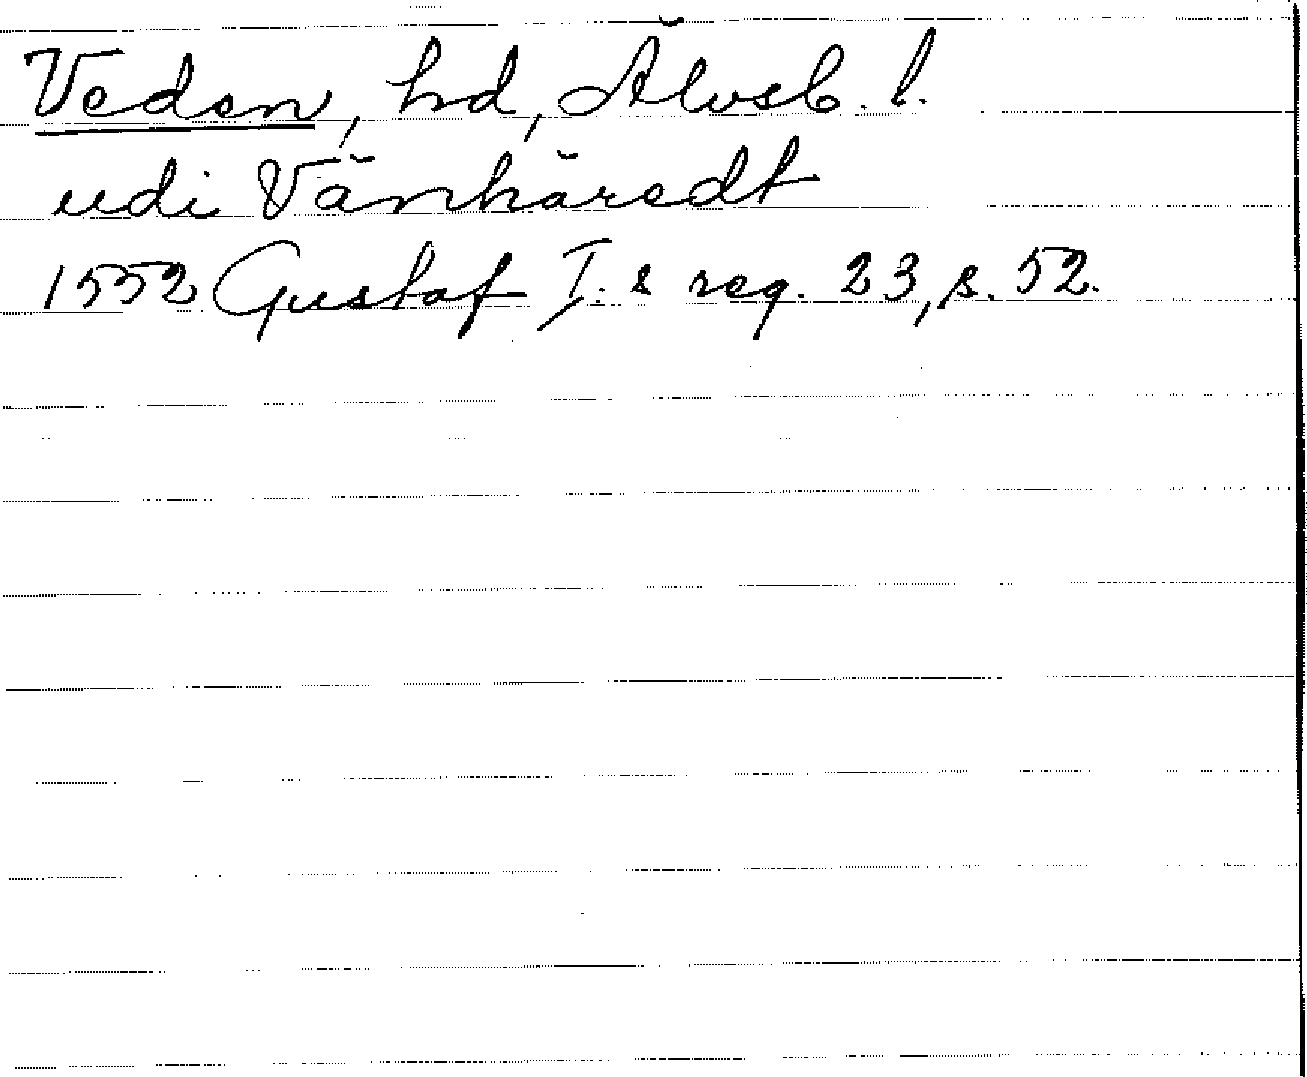 Veden, hd, Älvsb. l.
udi Vänhäredt
1552 Gustaf I. s reg. 23, s. 52.